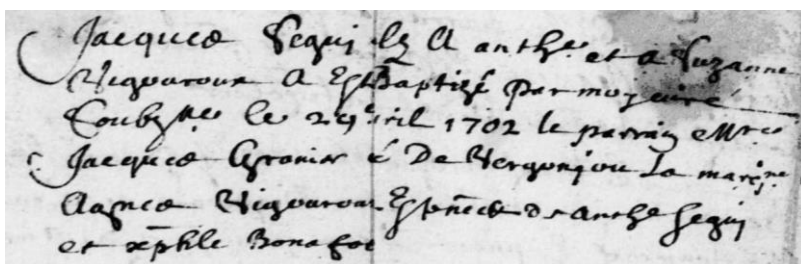 Jacques Segui filz A anthe. et a Suzanne
Vigouroux A Est Baptizé par moy curé
soubzne le 29 avril 1702 le parrain Mre
Jacques Granier é De Vergonjou La marine
Agnes Vigouroux Espnce de anthe Segui
et Bonafoe